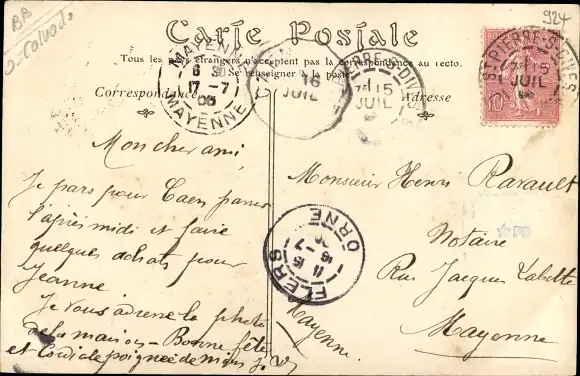 BB
924
O-Calvados
Carte Postale
Tous les pays étrangers n'acceptent pas la correspondance au recto.
Se renseigner à la poste
Correspondance
Adresse
MAYENNE
6 30
17-7
05
MAYENNE
16
JUIL
15
JUIL
ST PIERRE-S-DIVES
15
JUIL
10
Mon cher ami
Je pars pour Caen passer
l'après midi et faire
quelques achats pour
Jeanne
Je vous adresse la photo
de la maison - Bonne fête
et Cordiale poignée de mains
Monsieur Henri Ravault
Notaire
Rue Jacques Labitte
Mayenne
Mayenne.
FLERS
11 15
16-7
ORNE
PB